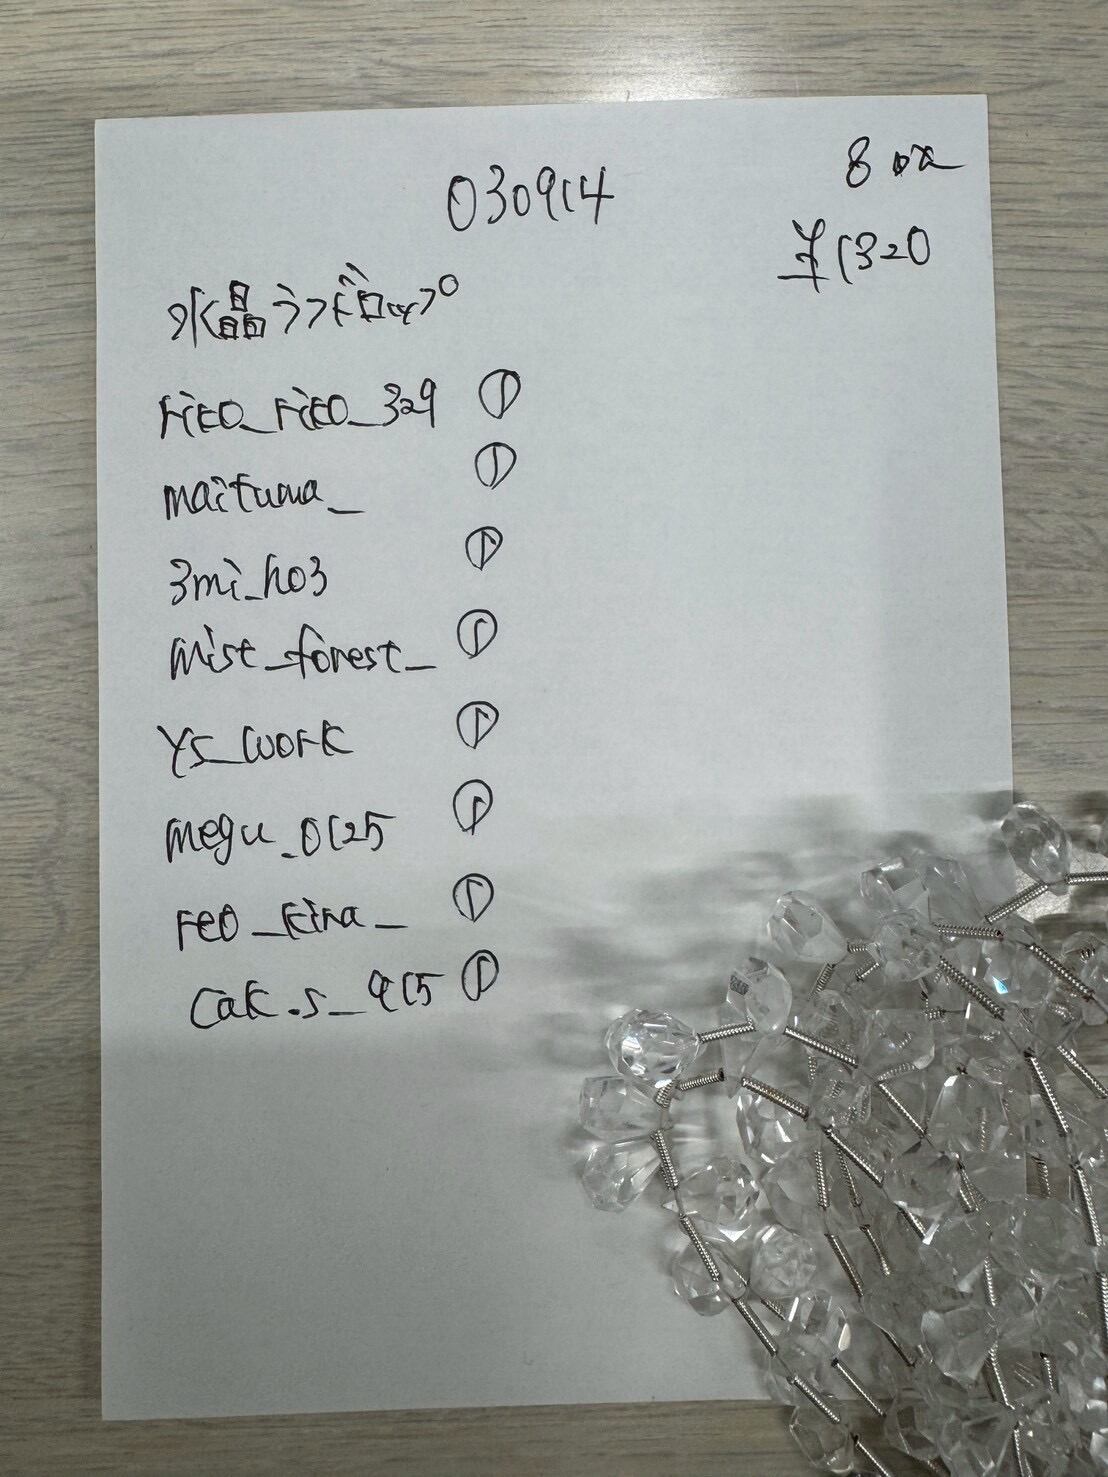 030914
8 pcs
単1320
水晶ラフドロップ
riko_riko_329 ①
maituma_ ①
3mi_ho3 ①
mist_forest_ ①
ys_work ①
megu_0125 ①
reo_kira_ ①
cak.s_915 ①